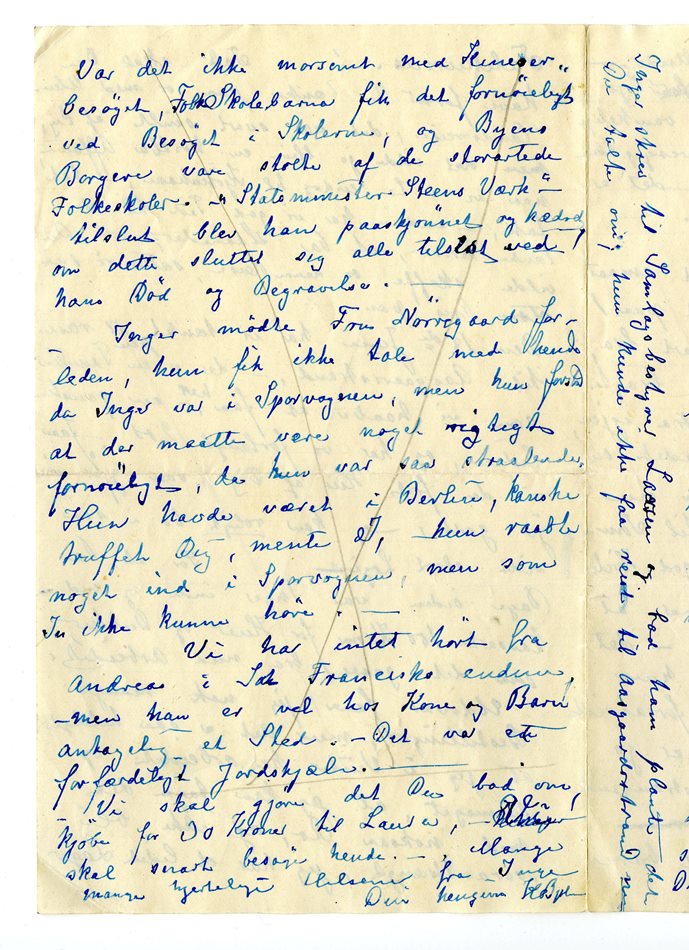 Var det ikke morsomt med Kineser-
besøget, FolkeSkolebørna fik det fornøieligt
ved Besøget i Skolerne, og Byens
Borgere vare stolte af de storartede
Folkeskoler. "Statsminister Steens Værk" –
tilslut blev han paaskjønnet og hædred
om dette sluttet sig alle tilslut ved
hans Død og Begravelse. —
Inger mødte Fru Nørregaard for-
leden, hun fik ikke tale med hende
da Inger var i Sporvognen, men hun forstod
at der maatte være noget rigtigt
fornøieligt, da hun var saa straalende.
Hun havde været i Berlin, kanske
truffet Dig, mente I, – hun raabte
noget ind i Sporvognen, men som
In ikke kunne høre. —
Vi har intet hørt fra
Andreas i Sct Francisko endnu,
– men han er vel hos Kone og Barn
antagelig et Sted. – Det var et
forfærdeligt Jordskjælv. —
Vi skal gjøre det Du bad om,
kjøbe for 30 Kroner til Laura, – Vi
skal snart besøge hende. – Mange
mange hjertelige Hilsener fra Inger
Din hengivne
Inger skrev til Samlagsbestyrer Laasen og bad ham plante det
Du talte om, hun kunde ikke faa reise til Aasgaardstrand nu